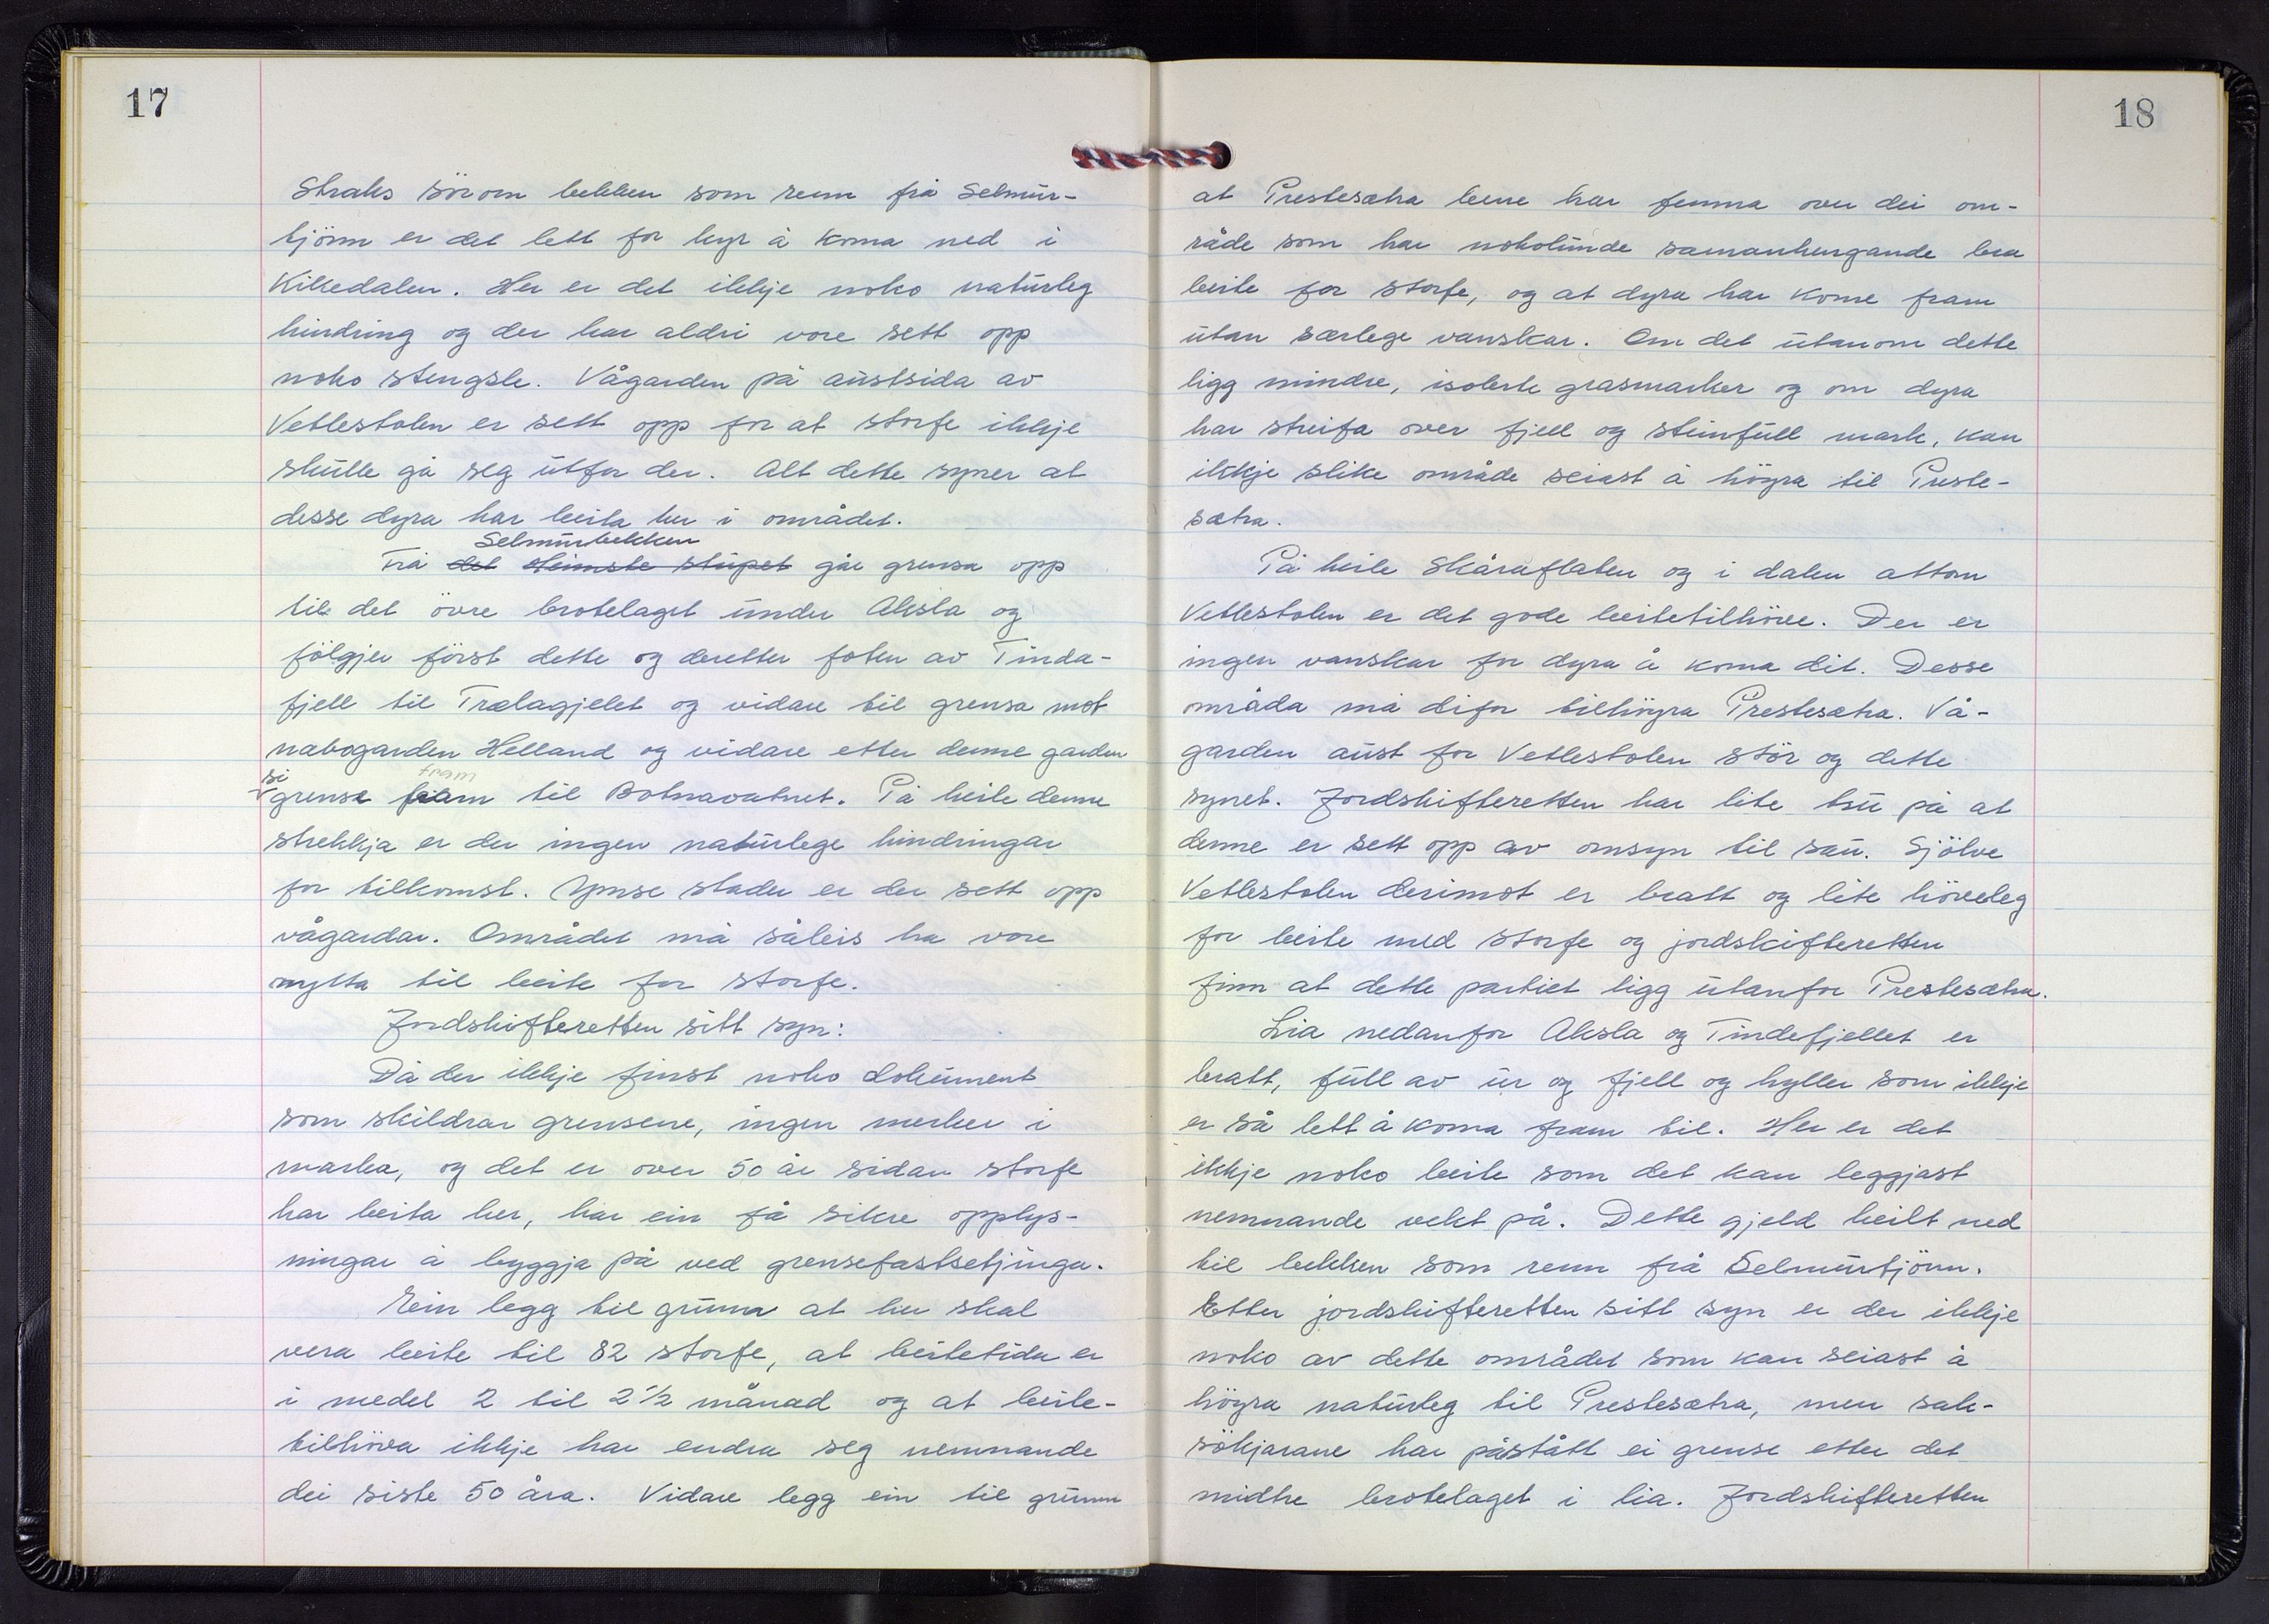 17
Straks sörom bekken som renn frå Selmur-
tjönn er det lett for kyr å koma ned i
Kilkedalen. Her er det ikkje noko naturleg
hindring og der har aldri vore sett opp
noko stengsle. Vågarden på austsida av
Vetlestolen er sett opp for at storfe ikkje
skulle gå seg utfor der. Alt dette syner at
desse dyra har beita her i området.
Selmurbekken
Frå det steinste stupet går grensa opp
til det övre brotelaget under Aksla og
fölgjer först dette og deretter foten av Tinda-
fjell til Trælagjelet og vidare til grensa mot
nabogarden Helland og vidare etter denne garden
si fram
grense fram til Botnavatnet. På heile denne
strekkja er der ingen naturlege hindringar
for tilkomst. Ymse stader er der sett opp
vågardar. Området må såleis ha vore
nytta til beite for storfe.
Jordskifteretten sitt syn:
Då der ikkje finst noko dokument
som skildrar grensene, ingen merker i
marka, og det er over 50 år sidan storfe
har beita her, har ein få sikre opplys-
ningar å byggja på ved grensefastsetjinga.
Ein legg til grunn at her skal
vera beite til 82 storfe, at beitetida er
i medel 2 til 2 1/2 månad og at beite-
tilhöva ikkje har endra seg nemnande
dei siste 50 åra. Vidare legg ein til grunn
18
at Prestesætra berre har femna over dei om-
råde som har nokolunde samanhengande bra
beite for storfe, og at dyra har kome fram
utan særlege vanskar. Om det utanom dette
ligg mindre, isolerte grasmarker og om dyra
har streifa over fjell og steinfull mark, kan
ikkje slike område seiast å höyra til Preste-
sætra.
På heile Skåraflaten og i dalen attom
Vetlestolen er det gode beitetilhöve. Der er
ingen vanskar for dyra å koma dit. Desse
områda må difor tilhöyra Prestesætra. Vå-
garden aust for Vetlestolen stör og dette
synet. Jordskifteretten har lite tru på at
denne er sett opp av omsyn til sau. Sjölve
Vetlestolen derimot er bratt og lite höveleg
for beite med storfe og jordskifteretten
finn at dette partiet ligg utanfor Prestesætra.
Lia nedanfor Aksla og Tindefjellet er
bratt, full av ur og fjell og hyller som ikkje
er så lett å koma fram til. Her er det
ikkje noko beite som det kan leggjast
nemnande vekt på. Dette gjeld heilt ned
til bekken som renn frå Selmurtjönn.
Etter jordskifteretten sitt syn er der ikkje
noko av dette området som kan seiast å
höyra naturleg til Prestesætra, men sak-
sökjarane har påstått ei grense etter det
midtre brotelaget i lia. Jordskifteretten